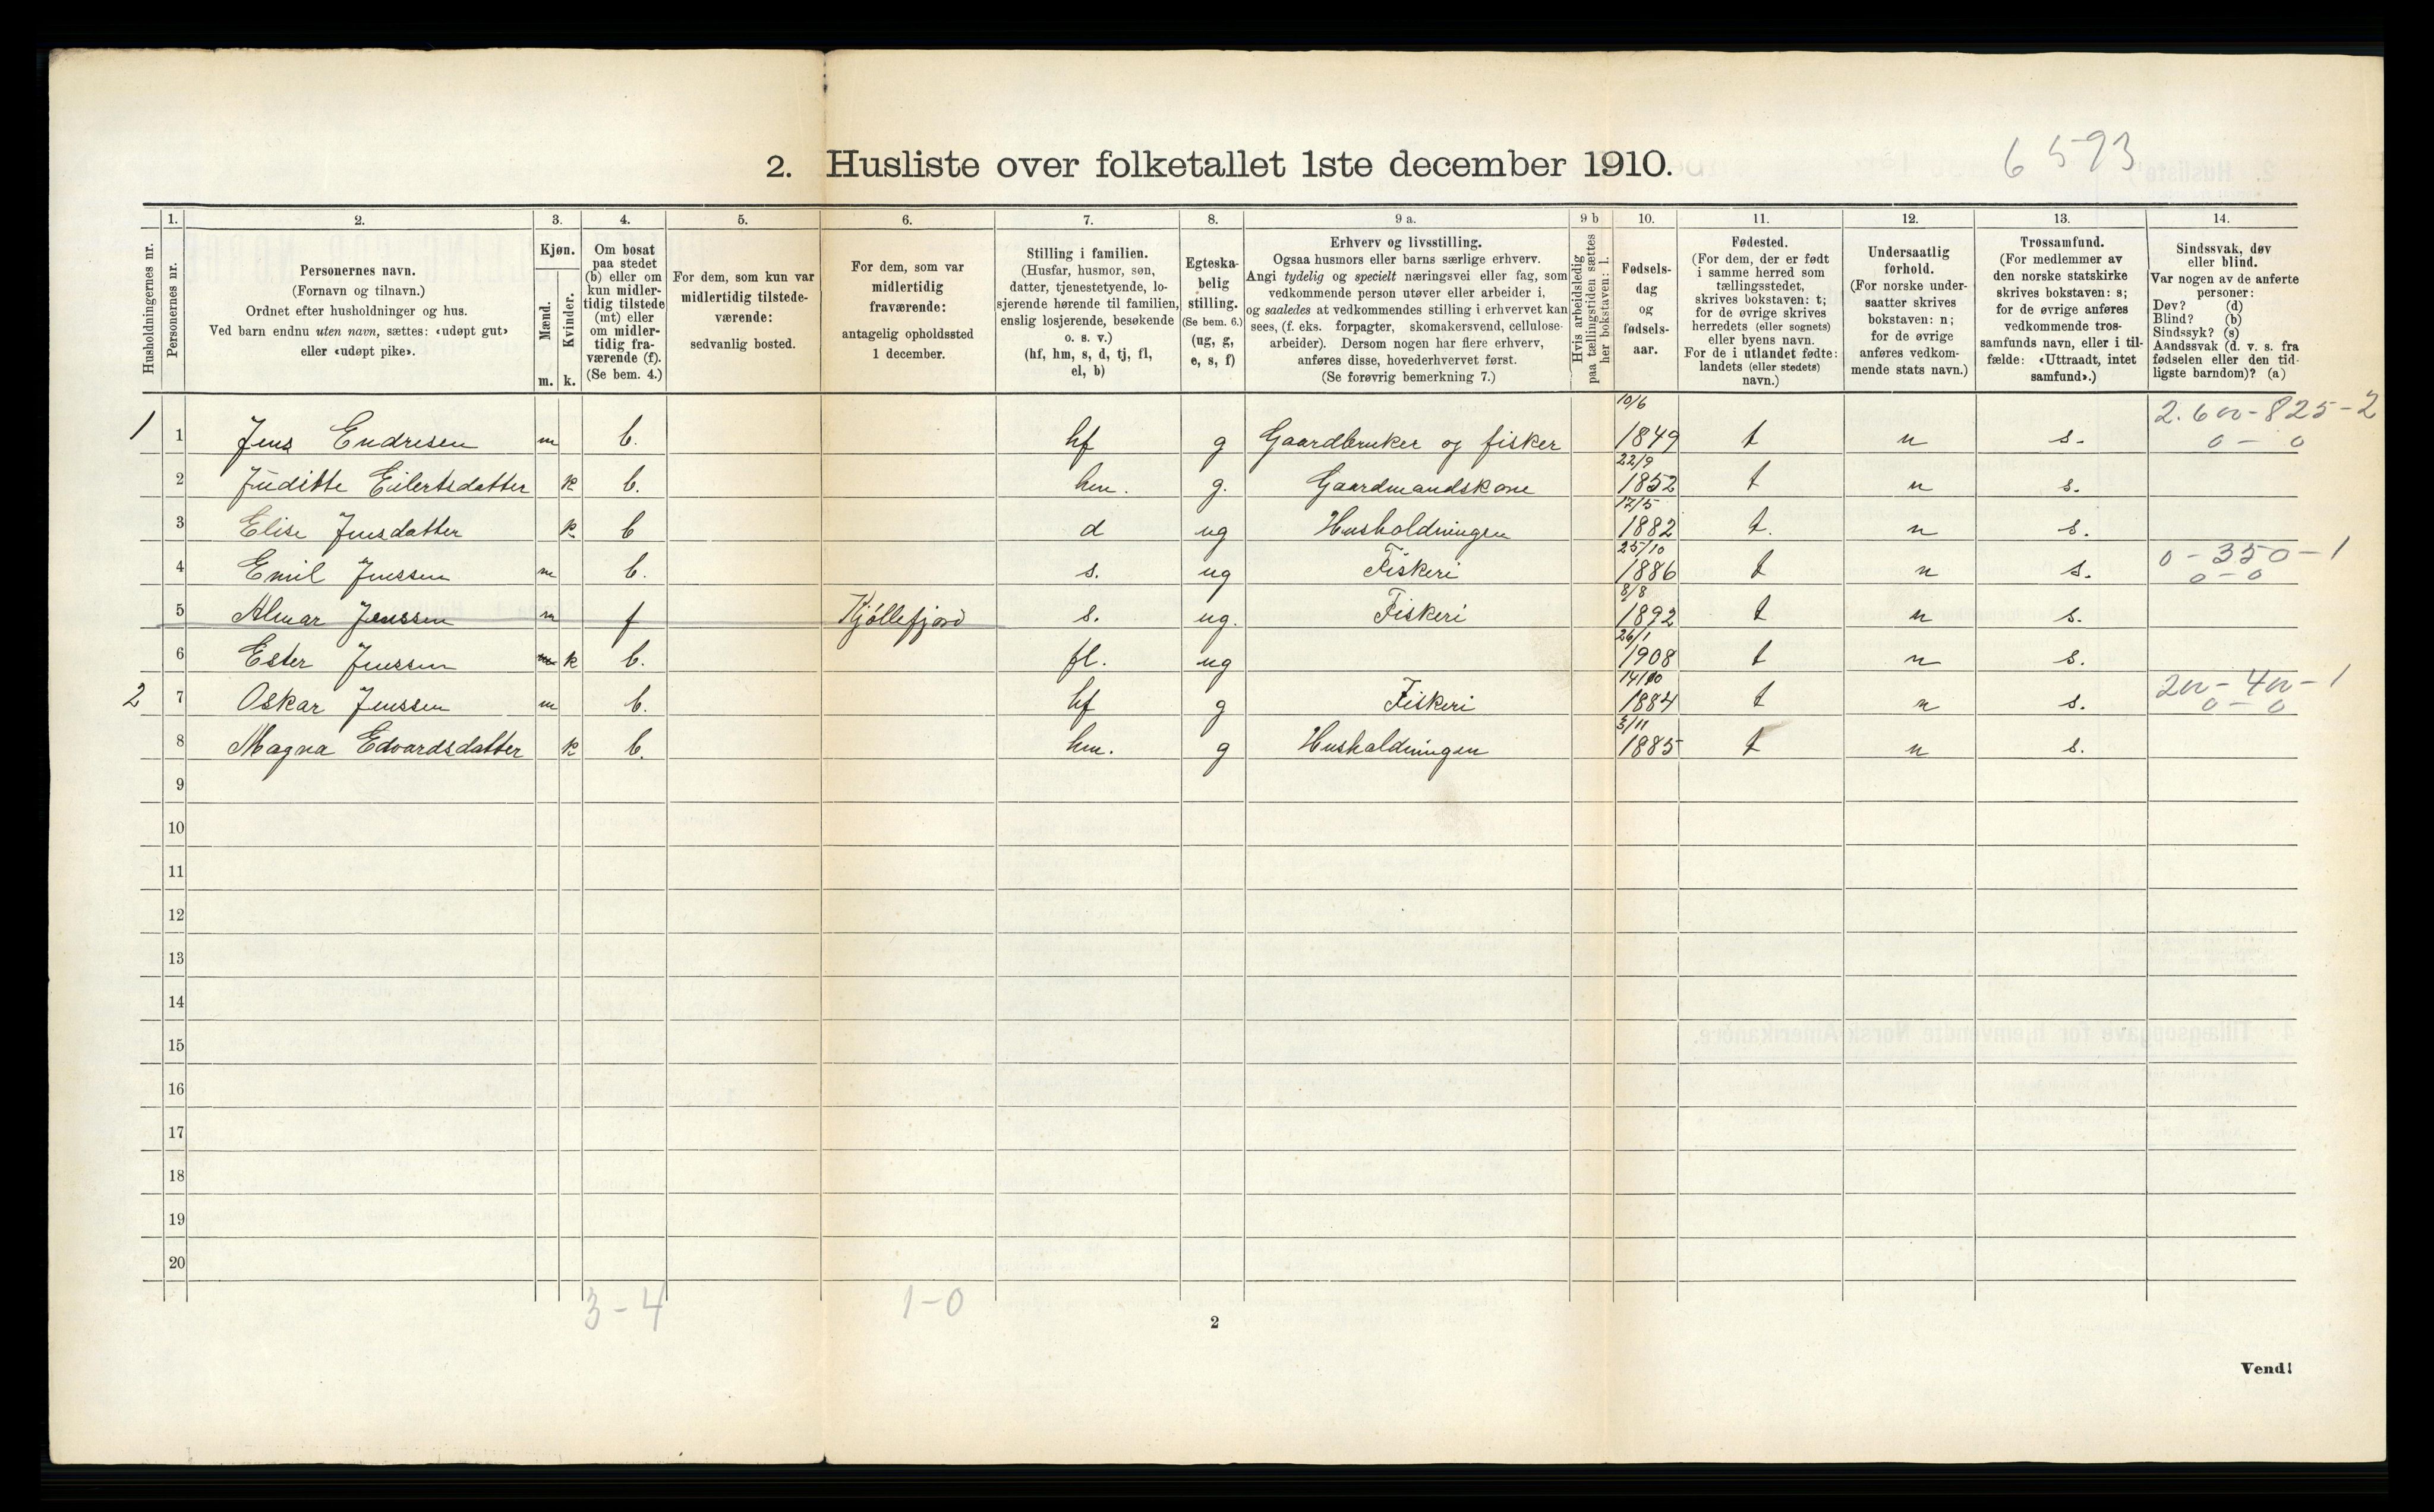 6593
2. Husliste over folketallet 1ste december 1910.
Husholdningernes nr.
1.
Personernes nr.
2.
Personernes navn.
(Fornavn og tilnavn.)
Ordnet efter husholdninger og hus.
Ved barn endnu uten navn, sættes: «udøpt gut»
eller «udøpt pike».
3.
Kjøn.
Mænd.
Kvinder.
m. k.
4.
Om bosat
paa stedet
(b) eller om
kun midler-
tidig tilstede
(mt) eller
om midler-
tidig fra-
værende (f).
(Se bem. 4.)
5.
For dem, som kun var
midlertidig tilstede-
værende:
sedvanlig bosted.
6.
For dem, som var
midlertidig
fraværende:
antagelig opholdssted
1 december.
7.
Stilling i familien.
(Husfar, husmor, søn,
datter, tjenestetyende, lo-
sjerende hørende til familien,
enslig losjerende, besøkende
o. s. v.)
(hf, hm, s, d, tj, fl,
el, b)
8.
Egteska-
belig
stilling.
(Se bem. 6.)
(ug, g,
e, s, f)
9 a.
Erhverv og livsstilling.
Ogsaa husmors eller barns særlige erhverv.
Angi tydelig og specielt næringsvei eller fag, som
vedkommende person utøver eller arbeider i,
og saaledes at vedkommendes stilling i erhvervet kan
sees, (f. eks. forpagter, skomakersvend, cellulose-
arbeider). Dersom nogen har flere erhverv,
anføres disse, hovederhvervet først.
(Se forøvrig bemerkning 7.)
9 b
Hvis arbeidsledig
paa tællingstiden sættes
her bokstaven: l.
10.
Fødsels-
dag
og
fødsels-
aar.
11.
Fødested.
(For dem, der er født
i samme herred som
tællingsstedet,
skrives bokstaven: t;
for de øvrige skrives
herredets (eller sognets)
eller byens navn.
For de i utlandet fødte:
landets (eller stedets)
navn.)
12.
Undersaatlig
forhold.
(For norske under-
saatter skrives
bokstaven: n;
for de øvrige
anføres vedkom-
mende stats navn.)
13.
Trossamfund.
(For medlemmer av
den norske statskirke
skrives bokstaven: s;
for de øvrige anføres
vedkommende tros-
samfunds navn, eller i til-
fælde: «Uttraadt, intet
samfund».)
14.
Sindssvak, døv
eller blind.
Var nogen av de anførte
personer:
Døv? (d)
Blind? (b)
Sindssyk? (s)
Aandssvak (d. v. s. fra
fødselen eller den tid-
ligste barndom)? (a)
1 1 Jens Endresen m b. hf g Gaardbruker og fisker 10/6 1849 t n s. 2.600-825-2 0-0
2 Juditte Eilertsdatter k b. hm. g. Gaardmandskone 22/9 1852 t n s.
3 Elise Jensdatter k b d ug Husholdningen 17/5 1882 t. n s.
4 Emil Jenssen m b. s. ug Fiskeri 25/10 1886 t n s. 0-350-1 0-0
5 Almar Jenssen m f Kjøllefjord s. ug. Fiskeri 8/8 1892 t n s.
6 Ester Jenssen m k b. fl. ug 26/1 1908 t n s.
2 7 Oskar Jenssen m b. hf g Fiskeri 14/10 1884 t n s. 200-400-1 0-0
8 Magna Edvardsdatter k b. hm. g Husholdningen 3/11 1885 t n s.
9
10
11
12
13
14
15
16
17
18
19
20
3-4 1-0
2
Vend!